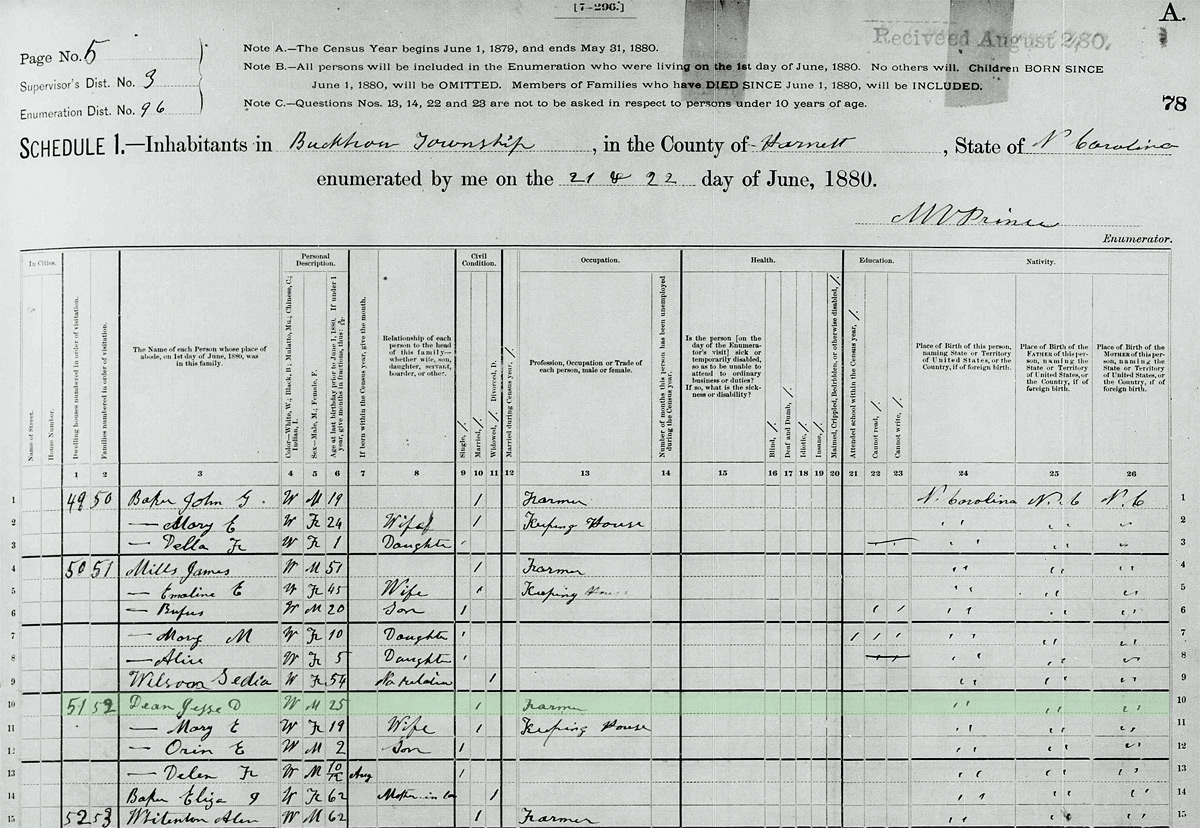 [7-296.]
A.
Page No. 5
Supervisor's Dist. No. 3
Enumeration Dist. No. 96
Note A.—The Census Year begins June 1, 1879, and ends May 31, 1880.
Note B.—All persons will be included in the Enumeration who were living on the 1st day of June, 1880. No others will. Children BORN SINCE
June 1, 1880, will be OMITTED. Members of Families who have DIED SINCE June 1, 1880, will be INCLUDED.
Note C.—Questions Nos. 13, 14, 22 and 23 are not to be asked in respect to persons under 10 years of age.
Recived August
78
SCHEDULE 1.—Inhabitants in Buckhorn Township, in the County of Harnett, State of N. Carolina
enumerated by me on the 21 & 22 day of June, 1880.
M V Prince
Enumerator.
In Cities. Personal Description. Civil Condition. Occupation. Health. Education. Nativity.
Name of Street.
House Number.
Dwelling houses numbered in order of visitation.
Families numbered in order of visitation.
The Name of each Person whose place of
abode, on 1st day of June, 1880, was
in this family.
Color—White, W.; Black, B.; Mulatto, Mu.; Chinese, C.;
Indian, I.
Sex—Male, M.; Female, F.
Age at last birthday prior to June 1, 1880. If under 1
year, give months in fractions, thus: 3/12
If born within the Census year, give the month.
Relationship of each
person to the head
of this family—
whether wife, son,
daughter, servant,
boarder, or other.
Single, /
Married, /
Widowed, / Divorced, D.
Married during Census year, /
Profession, Occupation or Trade of
each person, male or female.
Number of months this person has been unemployed
during the Census year.
Is the person [on
the day of the Enumera-
tor's visit] sick or
temporarily disabled,
so as to be unable to
attend to ordinary
business or duties?
If so, what is the sick-
ness or disability?
Blind, /
Deaf and Dumb, /
Idiotic, /
Insane, /
Maimed, Crippled, Bedridden, or otherwise disabled, /
Attended school within the Census year, /
Cannot read, /
Cannot write, /
Place of Birth of this person,
naming State or Territory
of United States, or the
Country, if of foreign birth.
Place of Birth of the
FATHER of this per-
son, naming the
State or Territory
of United States, or
the Country, if of
foreign birth.
Place of Birth of the
MOTHER of this per-
son, naming the
State or Territory
of United States, or
the Country, if of
foreign birth.
1 2 3 4 5 6 7 8 9 10 11 12 13 14 15 16 17 18 19 20 21 22 23 24 25 26
1 49 50 Baker John G. W M 19 / Farmer N. Carolina N. C N. C 1
2 — Mary E W F 24 Wife / Keeping House " " " 2
3 — Della F W F 1 Daughte / " " " 3
4 50 51 Mills James W M 51 / Farmer " " " 4
5 — Emaline E W F 45 Wife / Keeping House " " " 5
6 — Rufus W M 20 Son / / / " " " 6
7 — Mary M W F 10 Daughte / / / / " " " 7
8 — Alice W F 5 Daughte / " " " 8
9 Wilson W F 54 No relation / " " " 9
10 51 52 Dean Jesse D W M 25 / Farmer " " " 10
11 — Mary E W F 19 Wife / Keeping House " " " 11
12 — Orin E W M 2 Son / " " " 12
13 — F W M 10/12 Aug / " " " 13
14 Baker Eliza W F 62 Mother in law / " " " 14
15 52 53 Whitenton W M 62 / Farmer " " " 15